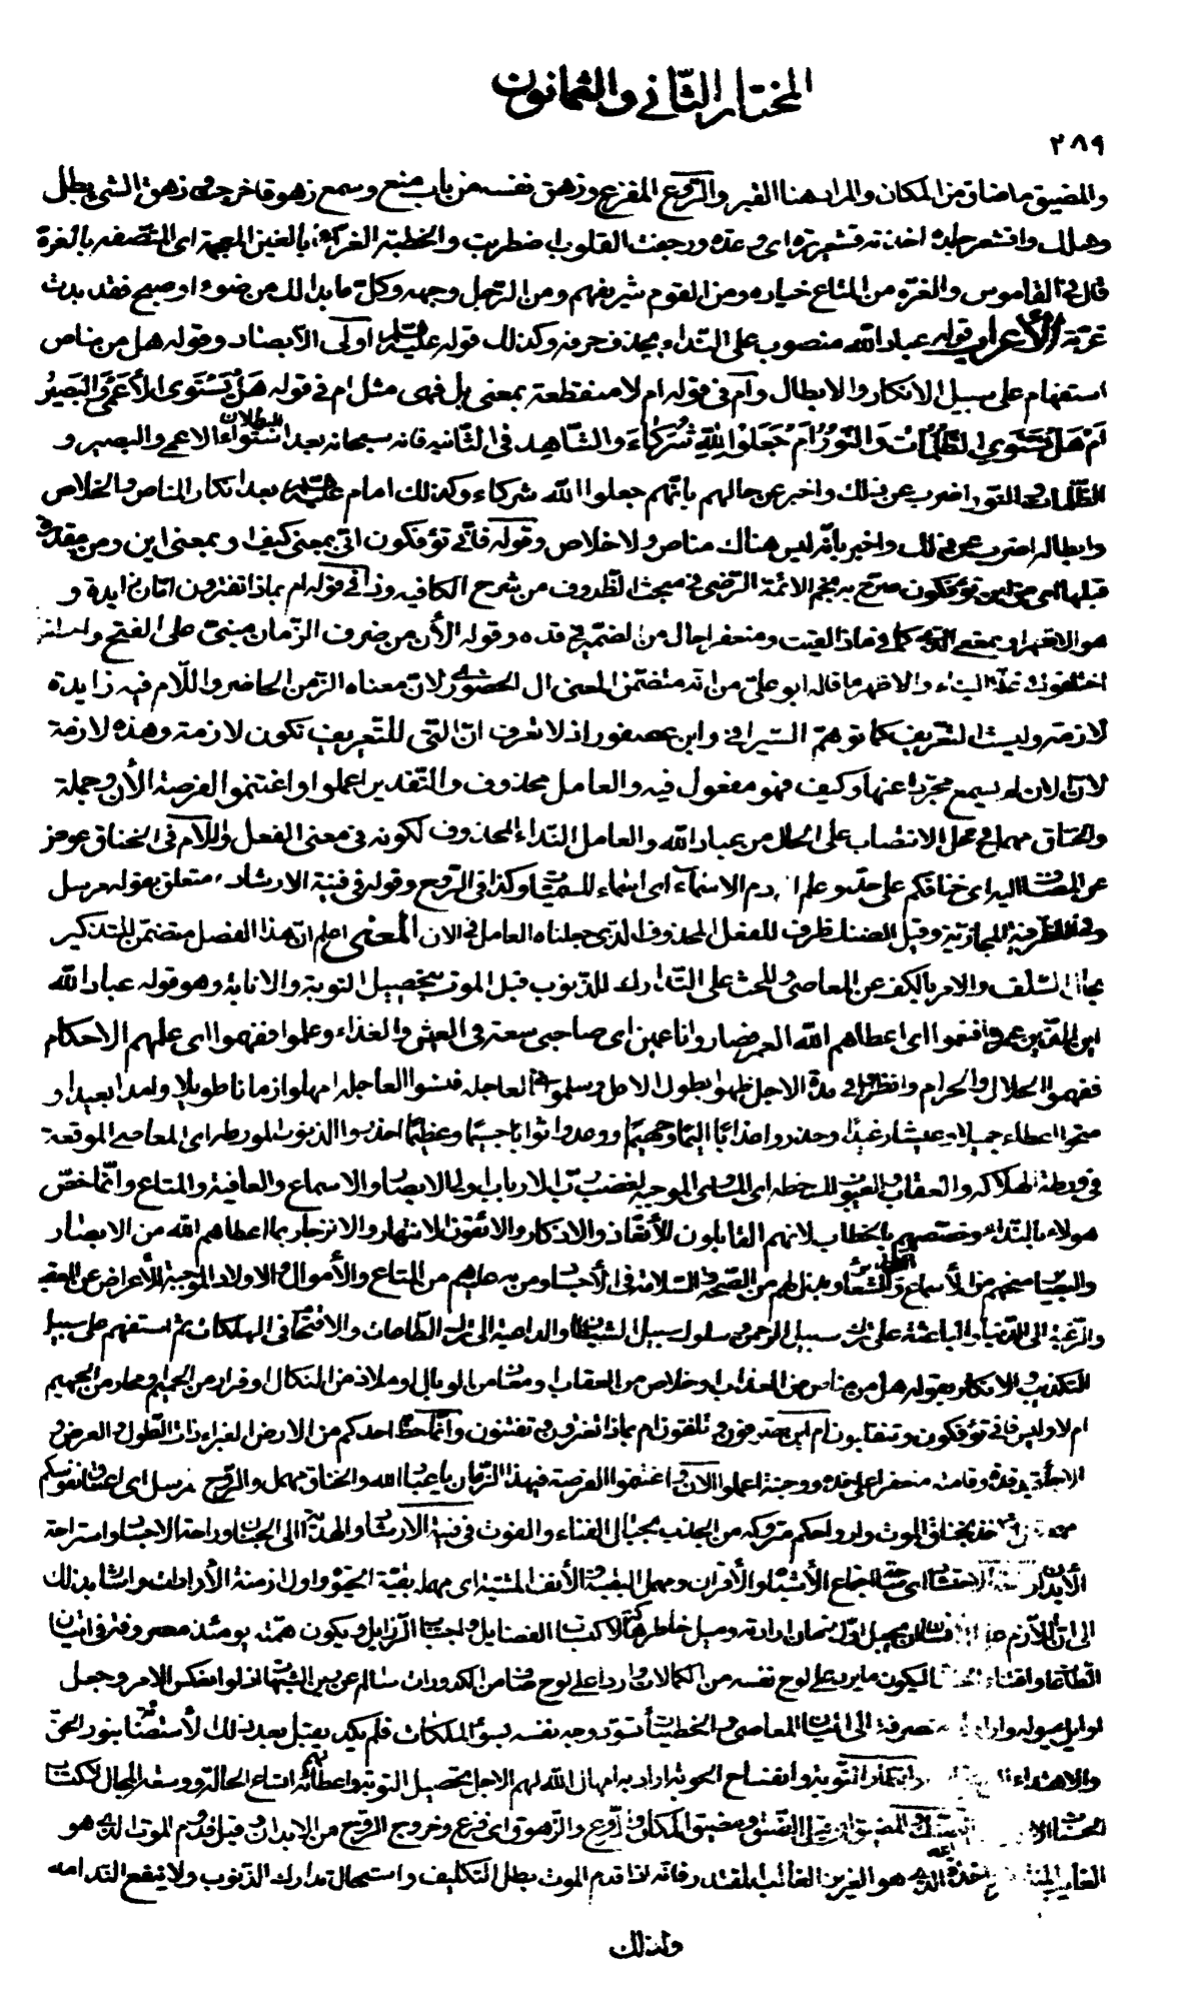 المختار الثاني والثمانون
٢٨٩
والمضيق ما ضاق من المكان والمراد هنا القبر والرّوع المفزع وزهق نفسه من باب منع وسمع زهوقا خرجت وزهق الشي بطل
وهلك واقشعر جلده اخذته قشعريرة اى رعدة ورجفت القلوب اضطربت والخطبة الغراء بالغين المعجمة اى المتّصفه بالغرة
قال في القاموس والغرّة من المتاع خياره ومن القوم شريفهم ومن الرّجل وجهه وكلّ ما بدا لك من ضوء او صبح فقد بدت
غرّته الأعراب قوله عباد الله منصوب على النّداء بحذف حرفه وكذلك قوله عليه السلم اولى الأبصار وقوله هل من مناص
استفهام على سبيل الانكار والابطال وأم فى قوله ام لا منقطعة بمعنى بل فهى مثل ام فى قوله هَلْ يَسْتَوِى الأَعْمى وَالْبَصِيرُ
اَمْ هَلْ تَسْتَوِي الظُّلُمَاتُ وَالنُّورُ اَمْ جَعَلُوْا لِلّهِ شُرَكَاءَ والشّاهد فى الثّانيه فانه سبحانه بعد ابطال استواء الاعمى والبصير و
الظّلمات والنّور اضرب عن ذلك واخبر عن حالهم بانّهم جعلوا الله شركاء وكذلك امام عليه السلم بعد انكار المناص والخلاص
وابطاله اضرب عن ذلك واخبر بأنّه ليس هناك مناص ولا خلاص وقوله فانّى تؤفكون انّى بمعنى كيف او بمعنى اين ومن مقدرة
قبلها اى من اين تؤفكون صرّح به نجم الائمة الرّضى في مبحث الظّروف من شرح الكافيه وذا فى قوله ام بماذا تغترون امّا زايدة و
هو الاظهر او بمعنى الّذى كما فى ماذا لقيت ومنعفرا حال من الضّمير في قده وقوله الأن من ظرف الزّمان مبنىّ على الفتح و
اختلفوا في علّة البناء والاظهر ما قاله ابو علىّ من انّه متضمّن لمعنى ال الحضورى لانّ معناه الزّمن الحاضر واللّام فيه زايدة
لازمة وليست للتّعريف كما توهّم السّيرافى وابن عصفور اذ لا نعرف انّ الّتى للتّعريف تكون لازمة وهذه لازمة
لانّ الان لم يسمع مجرّدا عنها وكيف فهو مفعول فيه والعامل محذوف والتّقدير اعملوا واغتنموا الفرصة الأن وجملة
والخناق مهمل في محلّ الانتصاب على الحال من عباد الله والعامل النّداء المحذوف لكونه فى معنى الفعل واللام فى الخناق عوض
عن المضاف اليه اى خناقكم على حدّ وعلم ادم الاسماء اى اسماء المسميّات وكذا فى الرّوح وقوله فى فينة الارشاد متعلق بقوله مرسل
وفى للظّرفية المجازيّة وقبل الضنك ظرف للفعل المحذوف الّذى جعلناه العامل فى الان المعنى اعلم انّ هذا الفصل متضمّن للتذكير
بحال السّلف والامر بالكفّ عن المعاصى والحثّ على التّدارك للذّنوب قبل الموت بتحصيل التوبة والانابة وهو قوله عباد الله
اين الّذين عمروا فنعموا اى اعطاهم الله العمر فصاروا ناعمين اى صاحبى سعة فى العيش والغذاء وعلموا ففهموا اى علّمهم الاحكام
ففهموا الحلال والحرام وانظروا فى مدة الاجل فلهوا بطول الامل وسلموا فى العاجلة فنسوا العاجله امهلوا زمانا طويلا وامدا بعيدا و
منحوا عطاء جميلا وعيشا رغيدا وحذروا عذابا اليما وجحيما ووعدوا ثوابا جسيما وعظيما احذروا الذنوب المورطه اى المعاصى الموقعة
فى ورطة الهلاكه والعقاب والعيوب المسخطه اى المساوى الموجبه لغضب ربّ الارباب اولى الابصار والاسماع والعافية والمتاع وانّما خصّ
هولاء بالنّداء وخصّصهم بالخطاب لانهم القابلون للأتّعاظ والاذكار والائقون للانتهار والانزجار بما اعطاهم الله من الابصار
والبصائر ومنحهم من الأسماع والضّمائر وبذل لهم من الصّحة والسّلامة فى الأجساد ومن به عليهم من المتاع والأموال والاولاد الموجبة للأعراض عن العقبى
والرّغبة الى الدّنيا والباعثة على ترك سبيل الرحمن وسلوك سبيل الشّيطان والداعية الى ترك الطّاعات والاقتحام فى الهلكات ثمّ استفهم على سبيل
التكذيب والانكار بقوله هل من مناص من العذاب او خلاص من العقاب او معاذ من الوبال او ملاذ من النكال او فرار من الجحيم او محار من الحميم
ام لا وليس فانّى تؤفكون وتنقلبون ام اين تصرفون وتلفتون ام بماذا تغترون وتفتنون وانّما حظّ احدكم من الارض الغبراء ذات الطّول والعرض
قدر قدّه وقامته منعفرا على خدّه ووجنته اعملوا الان واغتنموا الفرصة فى هذا الزّمان يا عباد الله والخناق مهمل والرّوح مرسل اى اعناق نفوسكم
اخذ بخناق الموت وارواحكم متروكه من الجذب بحبال الفناء والفوت فى فينة الارشاد والهداية الى الجنان وراحة الاجساد واستراحة
الأبدان الاحتشاد اى اجتماع الأشباه والأقران ومهل البقيّة وأنف المشيّة اى مهله بقيّة الحيوة واول ازمنة الأرادات واشار بذلك
الى انّ اللّازم على الانسان ان يجعل اوّل زمان ارادته وميل خاطره الى اكتساب الفضايل واجتناب الرّزايل ويكون همّته يومئذ مصروفة فى اتيان
الطّاعات واقتناء ليكون ما يرد على لوح نفسه من الكمالات واردا على لوح صاف من الكدورات سالم عن رين الشبهات اذ لو انعكس الامر وجعل
اوايل ميوله وارادته منصرفة الى اتيان المعاصى والخطيئات تسوّد وجه نفسه بسوء الملكات فلم يكد يقبل بعد ذلك الأستضاءة بنور الحقّ
والاهتداء وانظار التّوبة وانفساح الحوبة اراد به امهال الله لهم الاجل بتحصيل التّوبة واعطائه لهم اتساع الحالة ووسعة المجال لاكتساب
الضّنك والمضيق اى قبل الضّيق ومضيق المكان والرّوع والزّهوق اى فزع وخروج الرّوح من الابدان وقبل قدوم الموت الّذى هو
الغائب المنتظر واخذة الّذى هو العزيز الغالب المقتدر فانّه اذا قدم الموت بطل التكليف واستحال تدارك الذّنوب ولا ينفع النّدامه
ولذلك